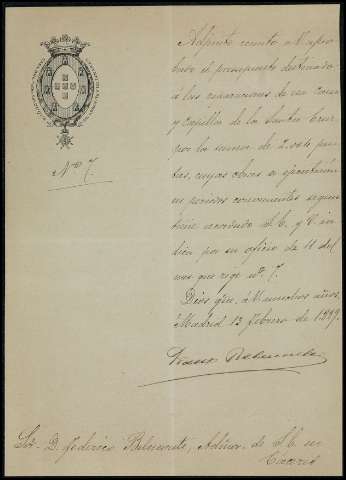 Nº 7.
Adjunto remito a V. apro-
bado el presupuesto destinado
a las reparaciones de esa Casa
y Capilla de la Santa Cruz
por la suma de 2.004 pese-
tas, cuyas obras se ejecutarán
en periodos convenientes segun
tiene acordado S. E. y V. in-
dica por su oficio de 11 del
mes que rige nº 7.
Dios gue. á V. muchos años.
Madrid 13 Febrero de 1899.
Sor. D. Federico Belmonte, Admor. de S. E. en